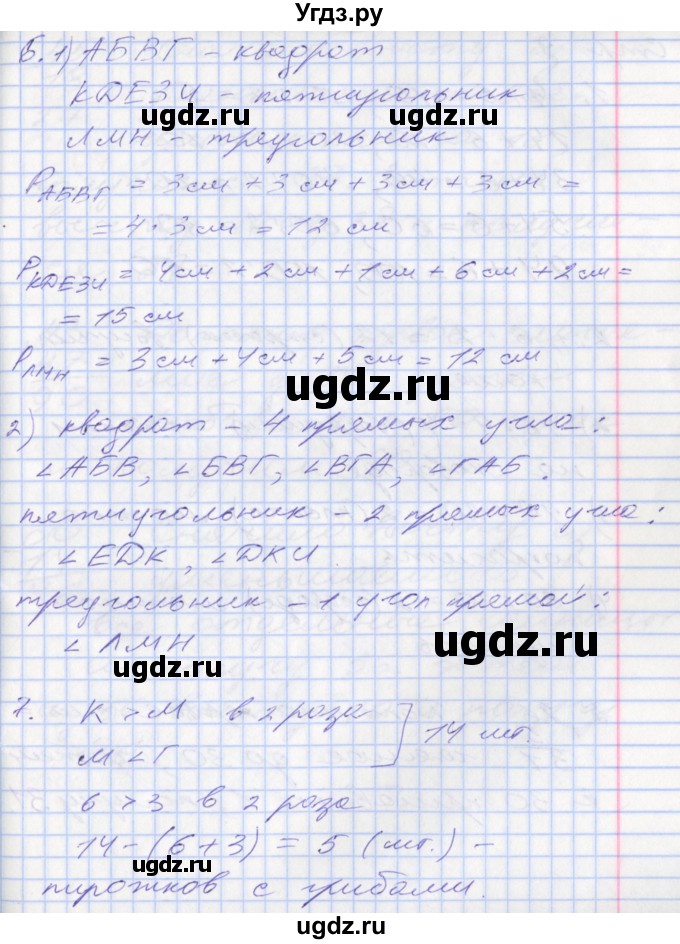 Угдз.ру
6. 1) АБВГ – квадрат
КДЕЗИ – пятиугольник
ugdz.ru ugdz.ru
ЛМН – треугольник
P АБВГ = 3 см + 3 см + 3 см + 3 см =
= 4 · 3 см = 12 см
ugdz.ru ugdz.ru
P КДЕЗИ = 4 см + 2 см + 1 см + 6 см + 2 см =
= 15 см
P ЛМН = 3 см + 4 см + 5 см = 12 см
ugdz.ru
2) квадрат – 4 прямых угла:
∠АБВ, ∠БВГ, ∠ВГА, ∠ГАБ;
пятиугольник – 2 прямых угла:
∠ЕДК, ∠ДКИ
ugdz.ru ugdz.ru
треугольник – 1 угол прямой:
∠ЛМН
ugdz.ru ugdz.ru
7. К > М в 2 раза
М < Г
14 шт.
6 > 3 в 2 раза
14 – (6 + 3) = 5 (шт.) –
ugdz.ru ugdz.ru
пирожков с грибами.
ugdz.ru